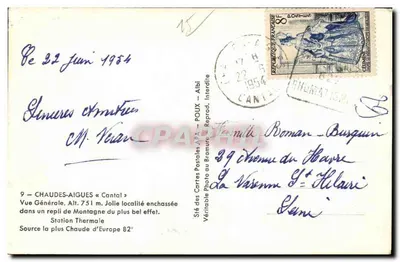 15
Ce 22 juin 1954
Sincères Amitiés
M. Veran
9 - CHAUDES-AIGUES « Cantal »
Vue Générale, Alt. 751 m. Jolie localité enchassée
dans un repli de Montagne du plus bel effet.
Station Thermale
Source la plus Chaude d'Europe 82°
Sté des Cartes Postales POUX - Albi
Véritable Photo au Bromure - Reprod. Interdite
8F
REPUBLIQUE FRANÇAISE
POSTES
22 - 6
1954
CANTAL
Famille Roman-Burquen
29 Avenue du Havre
La Varenne St Hilaire
Seine
CARTPHILA.COM